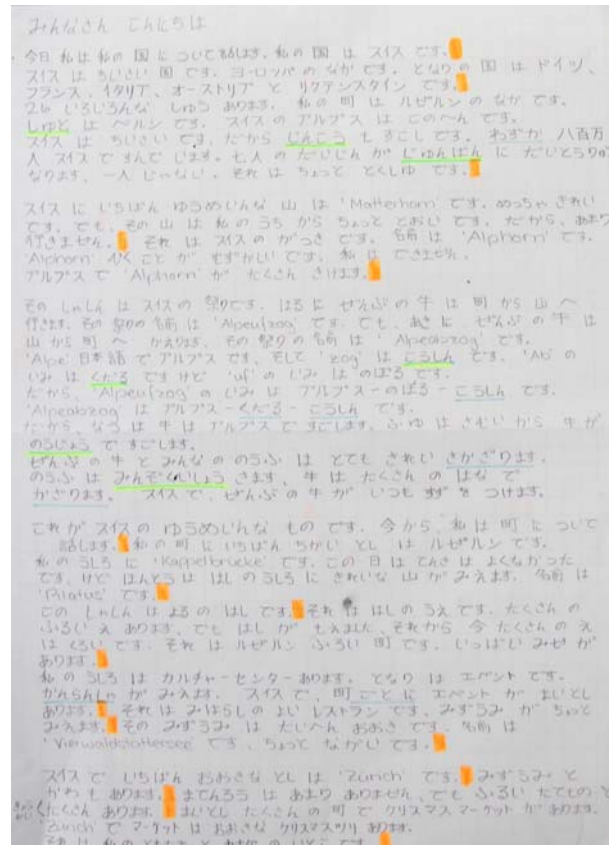 みんなさん こんにちは
今日 私は 私の 国に ついて 話します。私の 国 は スイス です。
スイス は ちいさい 国 です。ヨーロッパの なか です。となりの 国 は ドイツ、
フランス、イタリア、オーストリア と リクテンスタイン です。
26 いろいろんな しゅう あります。私の 町 は ルゼルンの なか です。
しゅと は ベルン です。スイスの アルプス は このへん です。
スイス は ちいさい です、だから じんこう も すこし です。わずか 八百万
人 スイス で すんで います。七人の だいじん が じゅんばん に だいとうりょう
なります、一人 じゃない。それ は ちょっと とくしゅ です。
スイス に いちばん ゆうめいんな 山 は 'Matterhorn' です。めっちゃ きれい
です。でも、その 山 は 私の うち から ちょっと とおい です。だから、あまり
行きません。それ は スイスの がっき です。名前 は 'Alphorn' です。
'Alphorn' ひく こと が むずかしい です。私 は できません。
アルプス で 'Alphorn' が たくさん きけます。
その しゃしん は スイスの 祭り です。はる に ぜんぶの 牛 は 町 から 山 へ
行きます。その 祭りの 名前 は 'Alpeufzog' です。でも、あき に ぜんぶの 牛 は
山 から 町 へ かえります。その 祭りの 名前 は 'Alpeabzog' です。
'Alpe' 日本語 で アルプス です、そして 'zog' は こうしん です。'Ab' の
いみ は くだる です けど 'uf' の いみ は のぼる です。
だから、'Alpeufzog' の いみ は アルプス - のぼる - こうしん です。
'Alpeabzog' は アルプス - くだる - こうしん です。
だから、なつ は 牛 は アルプス で すごします。ふゆ は さむい から 牛 が
のうじょう で すごします。
ぜんぶの 牛 と みんなの のうふ は とても きれい かざります。
のうふ は みんぞくいしょう きます、牛 は たくさんの はな で
かざります。スイス で、ぜんぶの 牛 が いつも すず を つけます。
これ が スイスの ゆうめいんな もの です。今 から、私 は 町 に ついて
話します。私の 町 に いちばん ちかい とし は ルゼルン です。
私の うしろ に 'Kappelbrücke' です。この 日 は てんき は よくなかった
です、けど ほんとう は はしの うしろ に きれいな 山 が みえます。名前 は
'Pilatus' です。
この しゃしん は よるの はし です。それ は はしの うえ です。たくさんの
ふるい え あります、でも はし が もえました、それから 今 たくさんの え
は くろい です。それ は ルゼルン ふるい 町 です。いっぱい みせ が
あります。
私の うしろ は カルチャーセンター あります。となり は エベント です。
かんらんしゃ が みえます。スイス で、町 ごと に エベント が まいとし
あります。それ は みはらしの よい レストラン です、みずうみ が ちょっと
みえます。その みずうみ は たいへん おおき です。名前 は
'Vierwaldstättersee' です、ちょっと ながい です。
スイス で いちばん おおきな とし は 'Zürich' です。みずうみ と
かわ も あります。まてんろう は あまり ありません、でも ふるい たてもの と
たくさん あります。まいとし たくさんの 町 で クリスマスマーケット が あります。
'Zürich' で マーケット は おおきな クリスマスツリ あります。